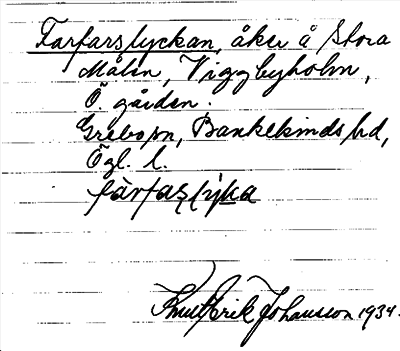 Farfarslyckan, åker å Stora
Målen, Viggbyholm,
Ö. gården.
Grebo sn, Bankekinds hd,
Ögl. l.
Knut Erik Johansson 1934.